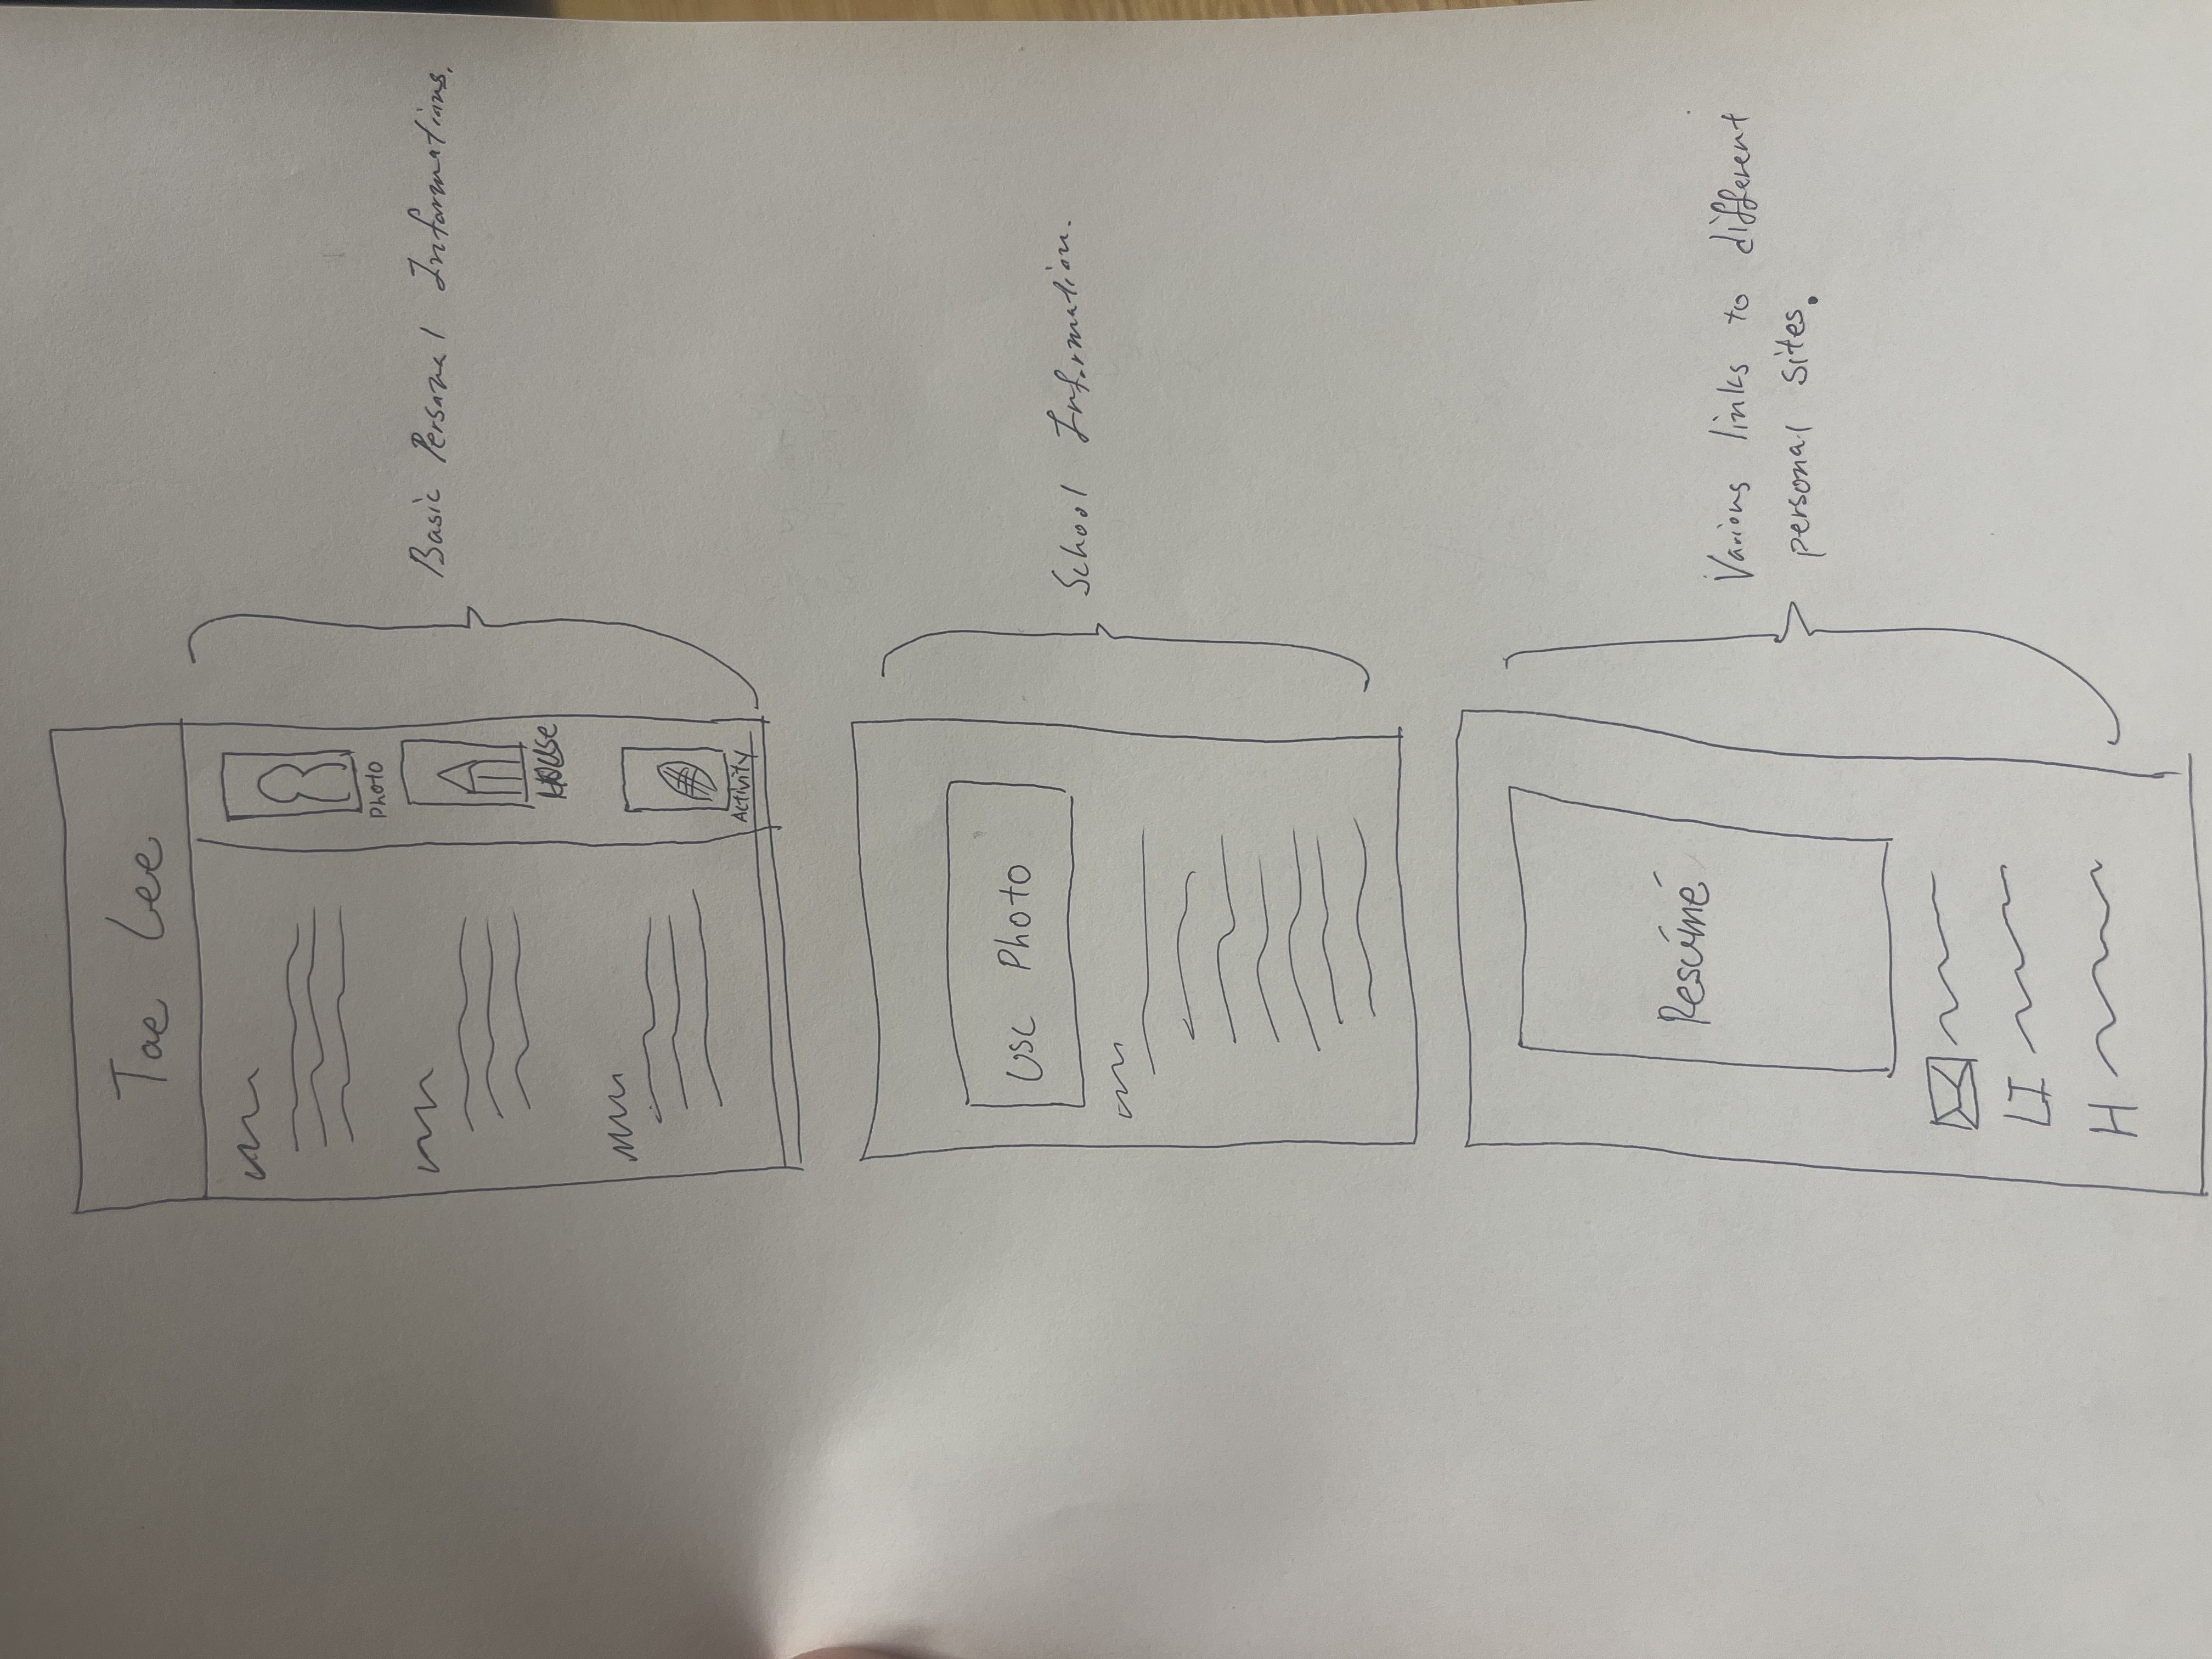 Tae Lee
Photo
House
Activity
Basic Personal Informations.
USC Photo
School Information.
Resúmé
Various links to different
personal sites.
LI
H